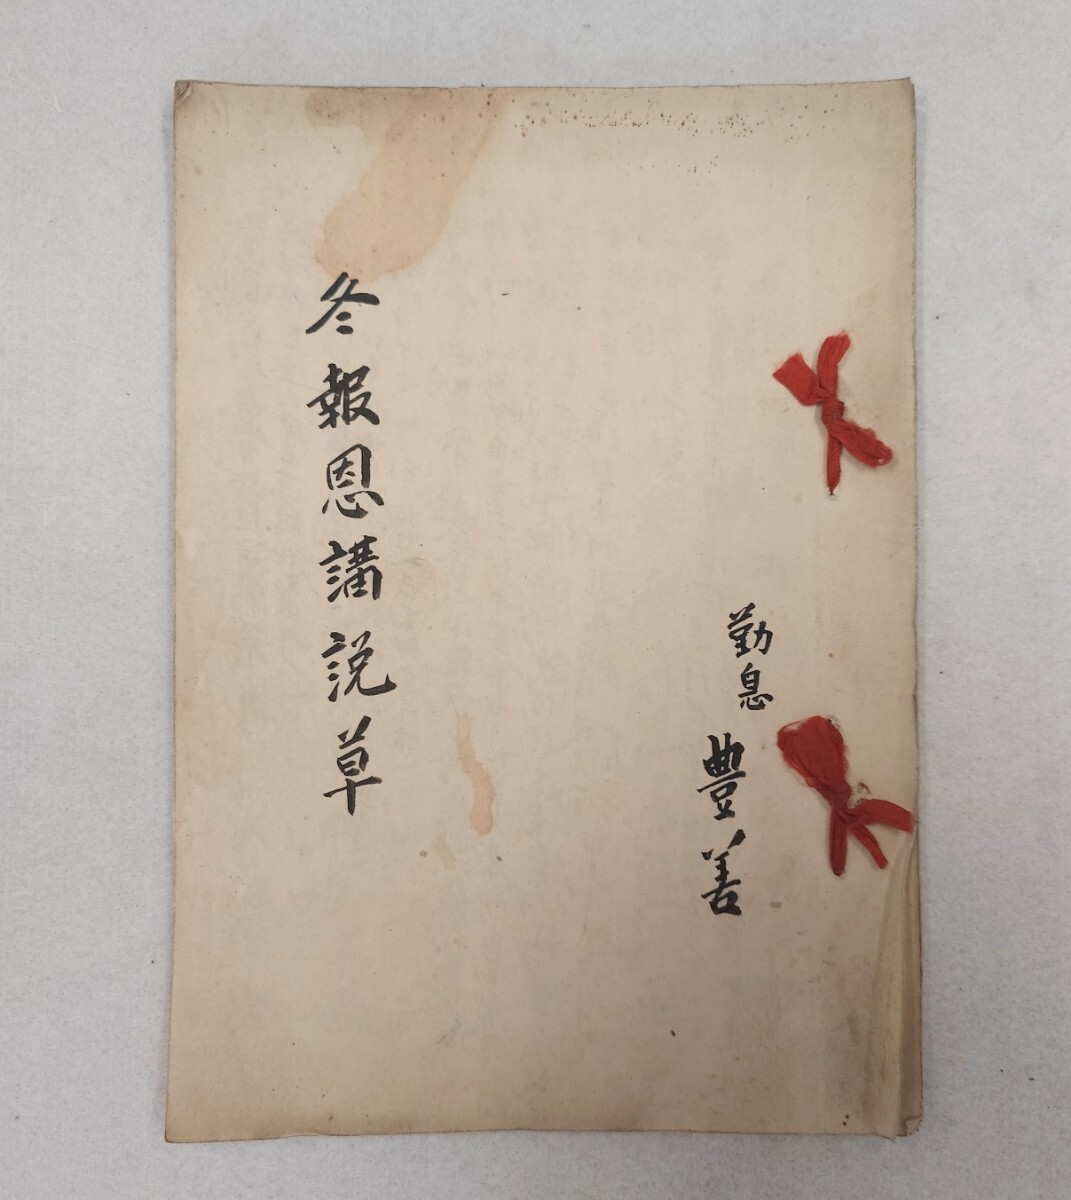 勤息
豊善
冬報恩講説草